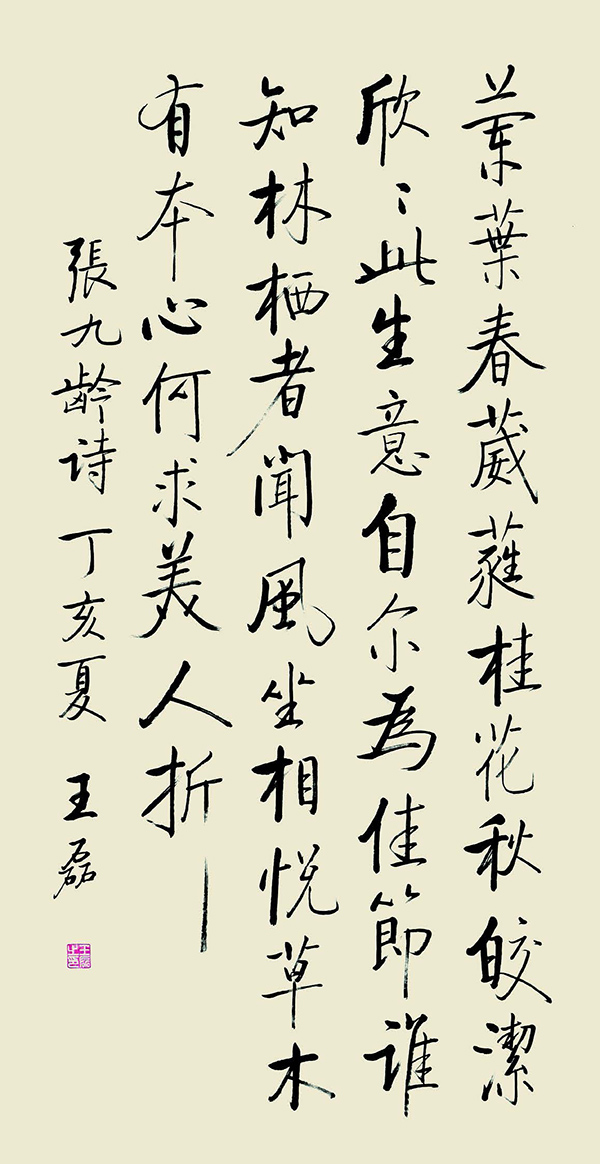 蘭葉春葳蕤桂花秋皎潔
欣〻此生意自尔為佳節誰
知林栖者聞風坐相悦草木
有本心何求美人折
張九龄诗丁亥夏 王磊